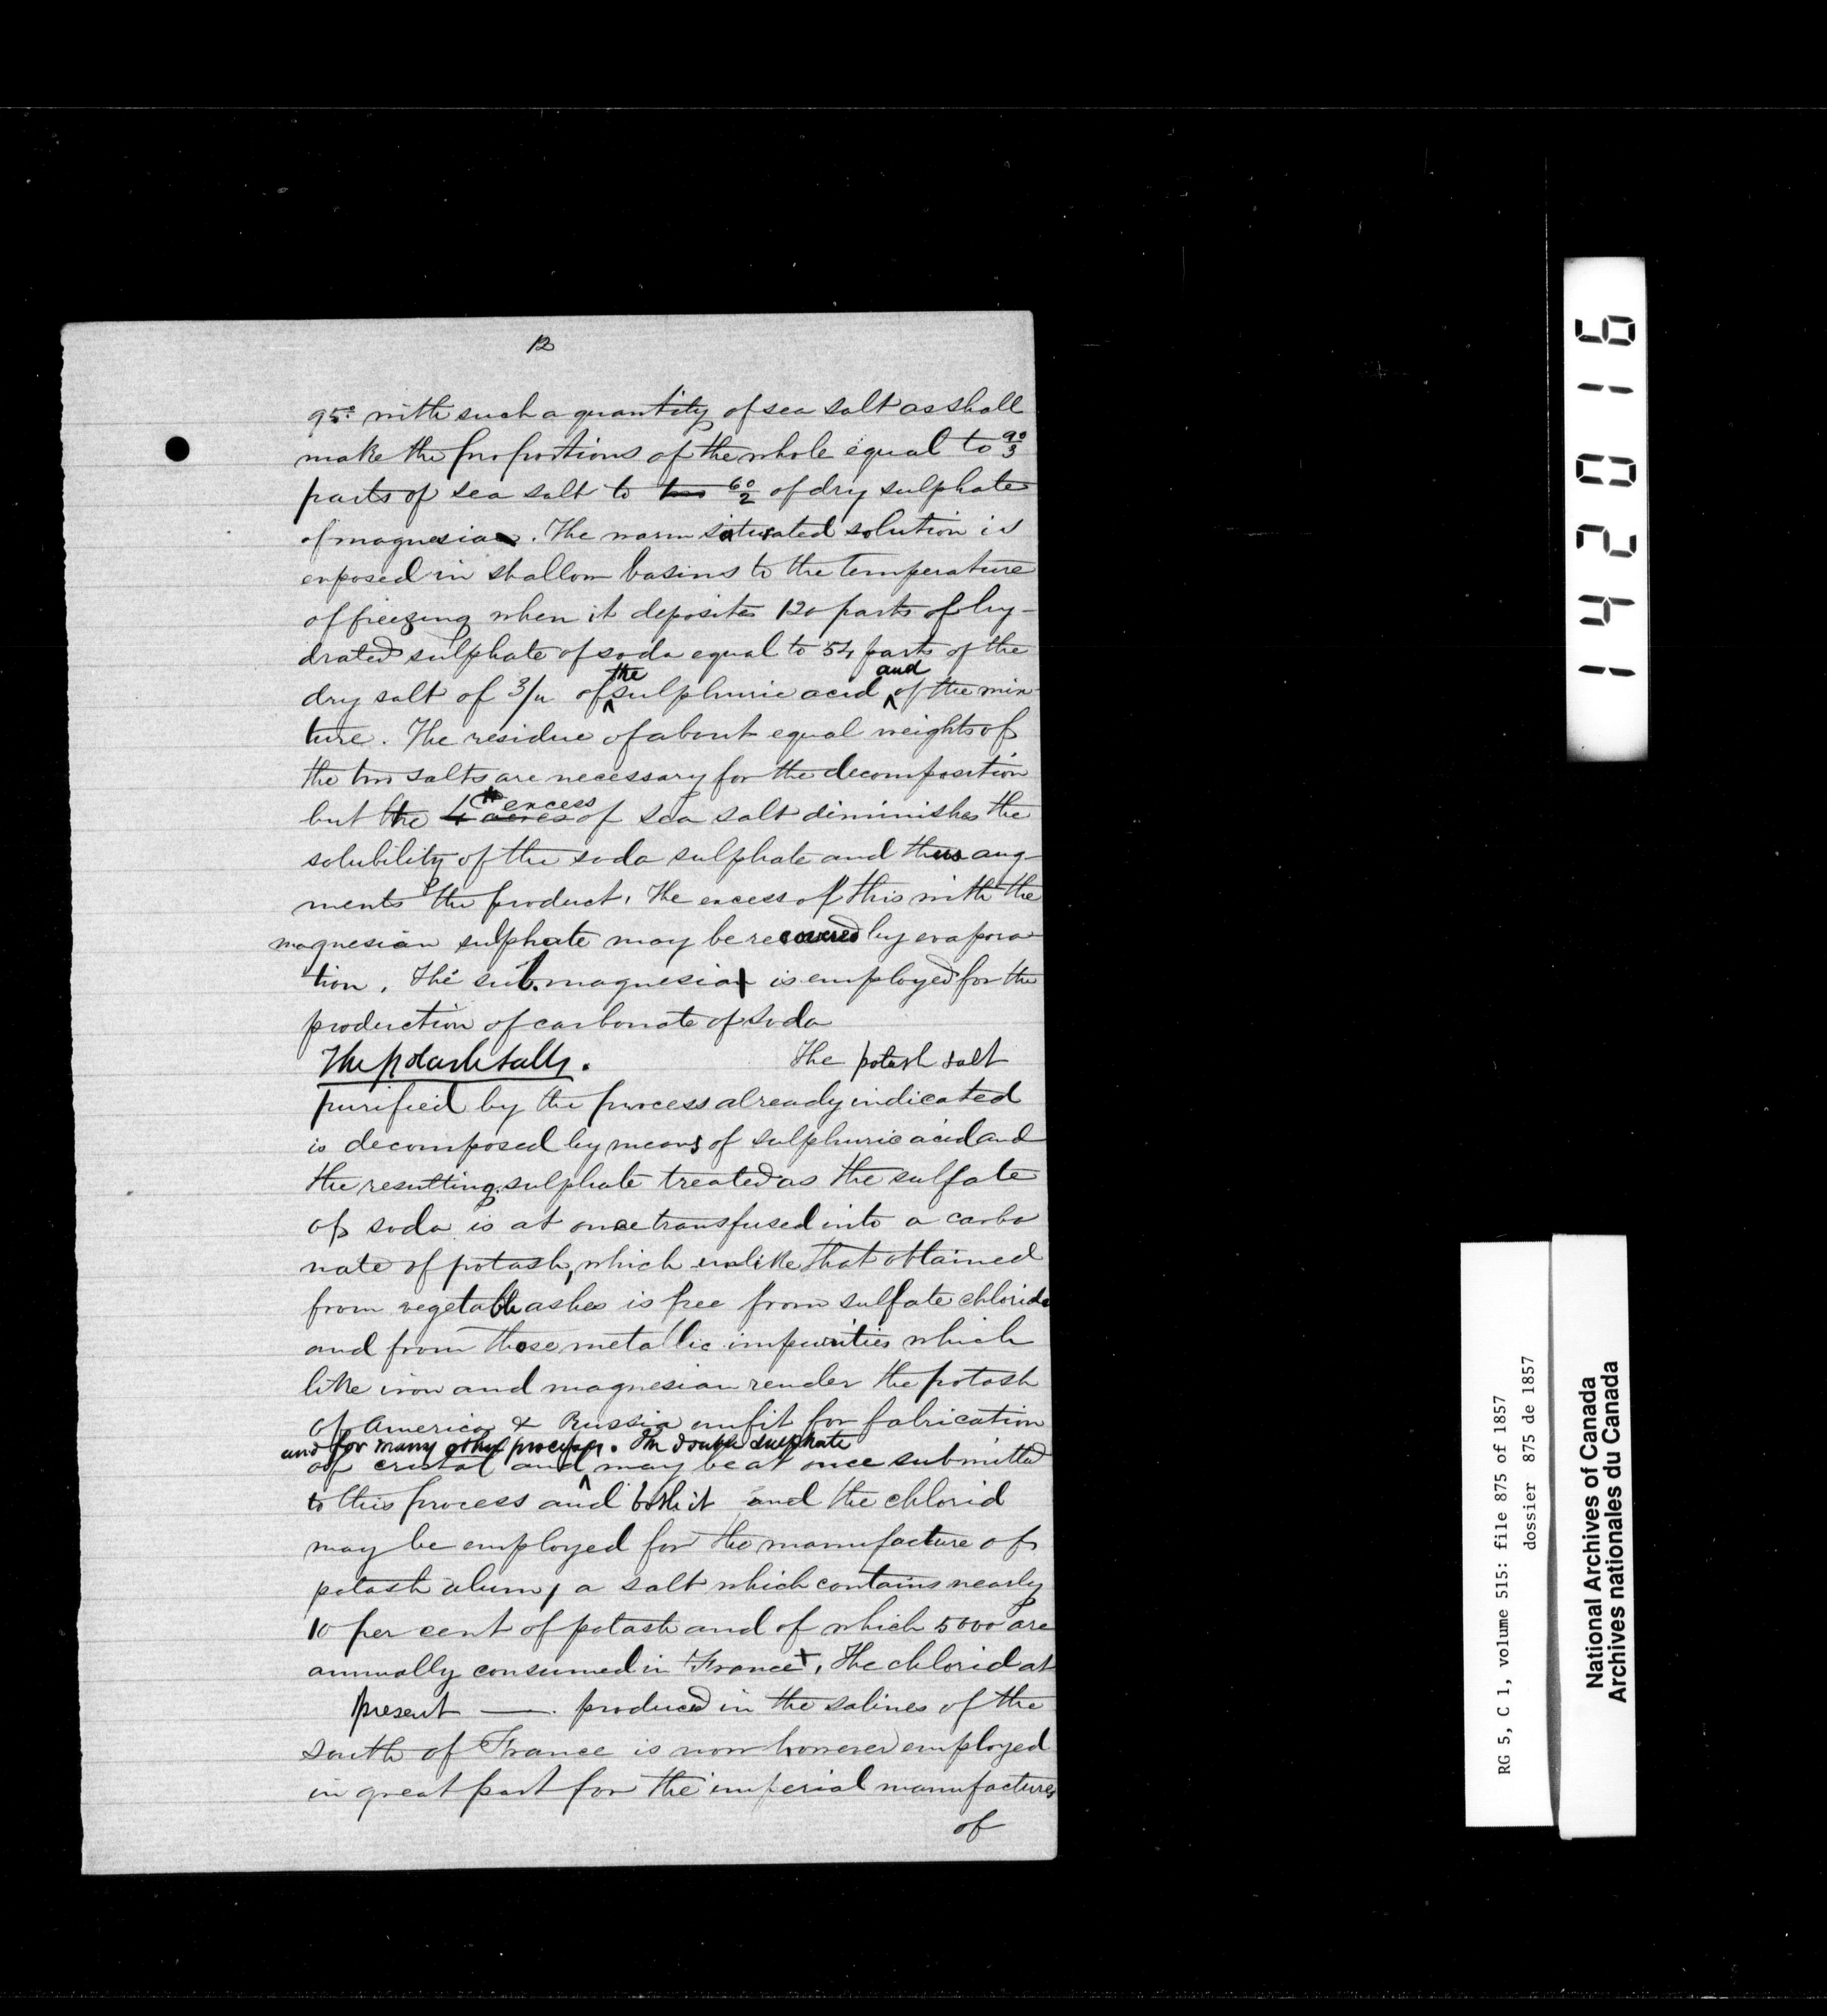 12
95° with such a quantity of sea salt as shall
make the proportions of the whole equal to 90/3
parts of sea salt to 60/2 of dry sulphate
of magnesia. The warm saturated solution is
exposed in shallow basins to the temperature
of freezing when it deposits 120 parts of hy-
drated sulphate of soda equal to 54 parts of the
dry salt of 3/4 of the sulphuric acid and of the mix-
ture. The residue of about equal weights of
the two salts are necessary for the decomposition
but the excess of sea salt diminishes the
solubility of the soda sulphate and thus aug-
ments the product. The excess of this with the
magnesian sulphate may be recovered by evapora-
tion. The sub. magnesia is employed for the
production of carbonate of soda
The potash salts. The potash salt
purified by the process already indicated
is decomposed by means of sulphuric acid and
the resulting sulphate treated as the sulfate
of soda is at once transfused into a carbo
nate of potash, which unlike that obtained
from vegetable ashes is free from sulfate chloride
and from those metallic impurities which
like iron and magnesian render the potash
of America & Russia unfit for fabrication
and for many other processes. The double sulphate
of cristal and may be at once submitted
to this process and both it and the chlorid
may be employed for the manufacture of
potash alum, a salt which contains nearly
10 per cent of potash and of which 5000 are
annually consumed in France +. The chlorid at
present —. produced in the salines of the
South of France is now however employed
in great part for the imperial manufactures
of
142016
RG 5, C 1, volume 515: file 875 of 1857
dossier 875 de 1857
National Archives of Canada
Archives nationales du Canada